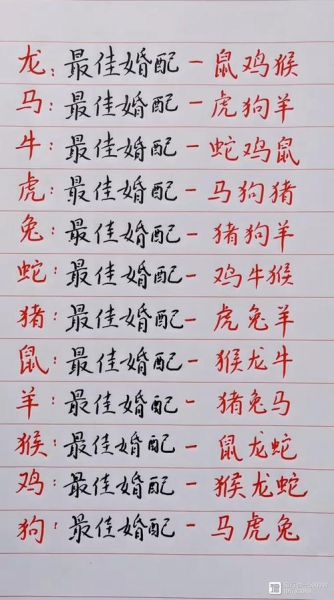 龙：最佳婚配－鼠鸡猴
马：最佳婚配－虎狗羊
牛：最佳婚配－蛇鸡鼠
虎：最佳婚配－马狗猪
兔：最佳婚配－猪狗羊
蛇：最佳婚配－鸡牛猴
猪：最佳婚配－虎兔羊
鼠：最佳婚配－猴龙牛
羊：最佳婚配－猪兔马
猴：最佳婚配－鼠龙蛇
鸡：最佳婚配－猴龙蛇
狗：最佳婚配－马虎兔